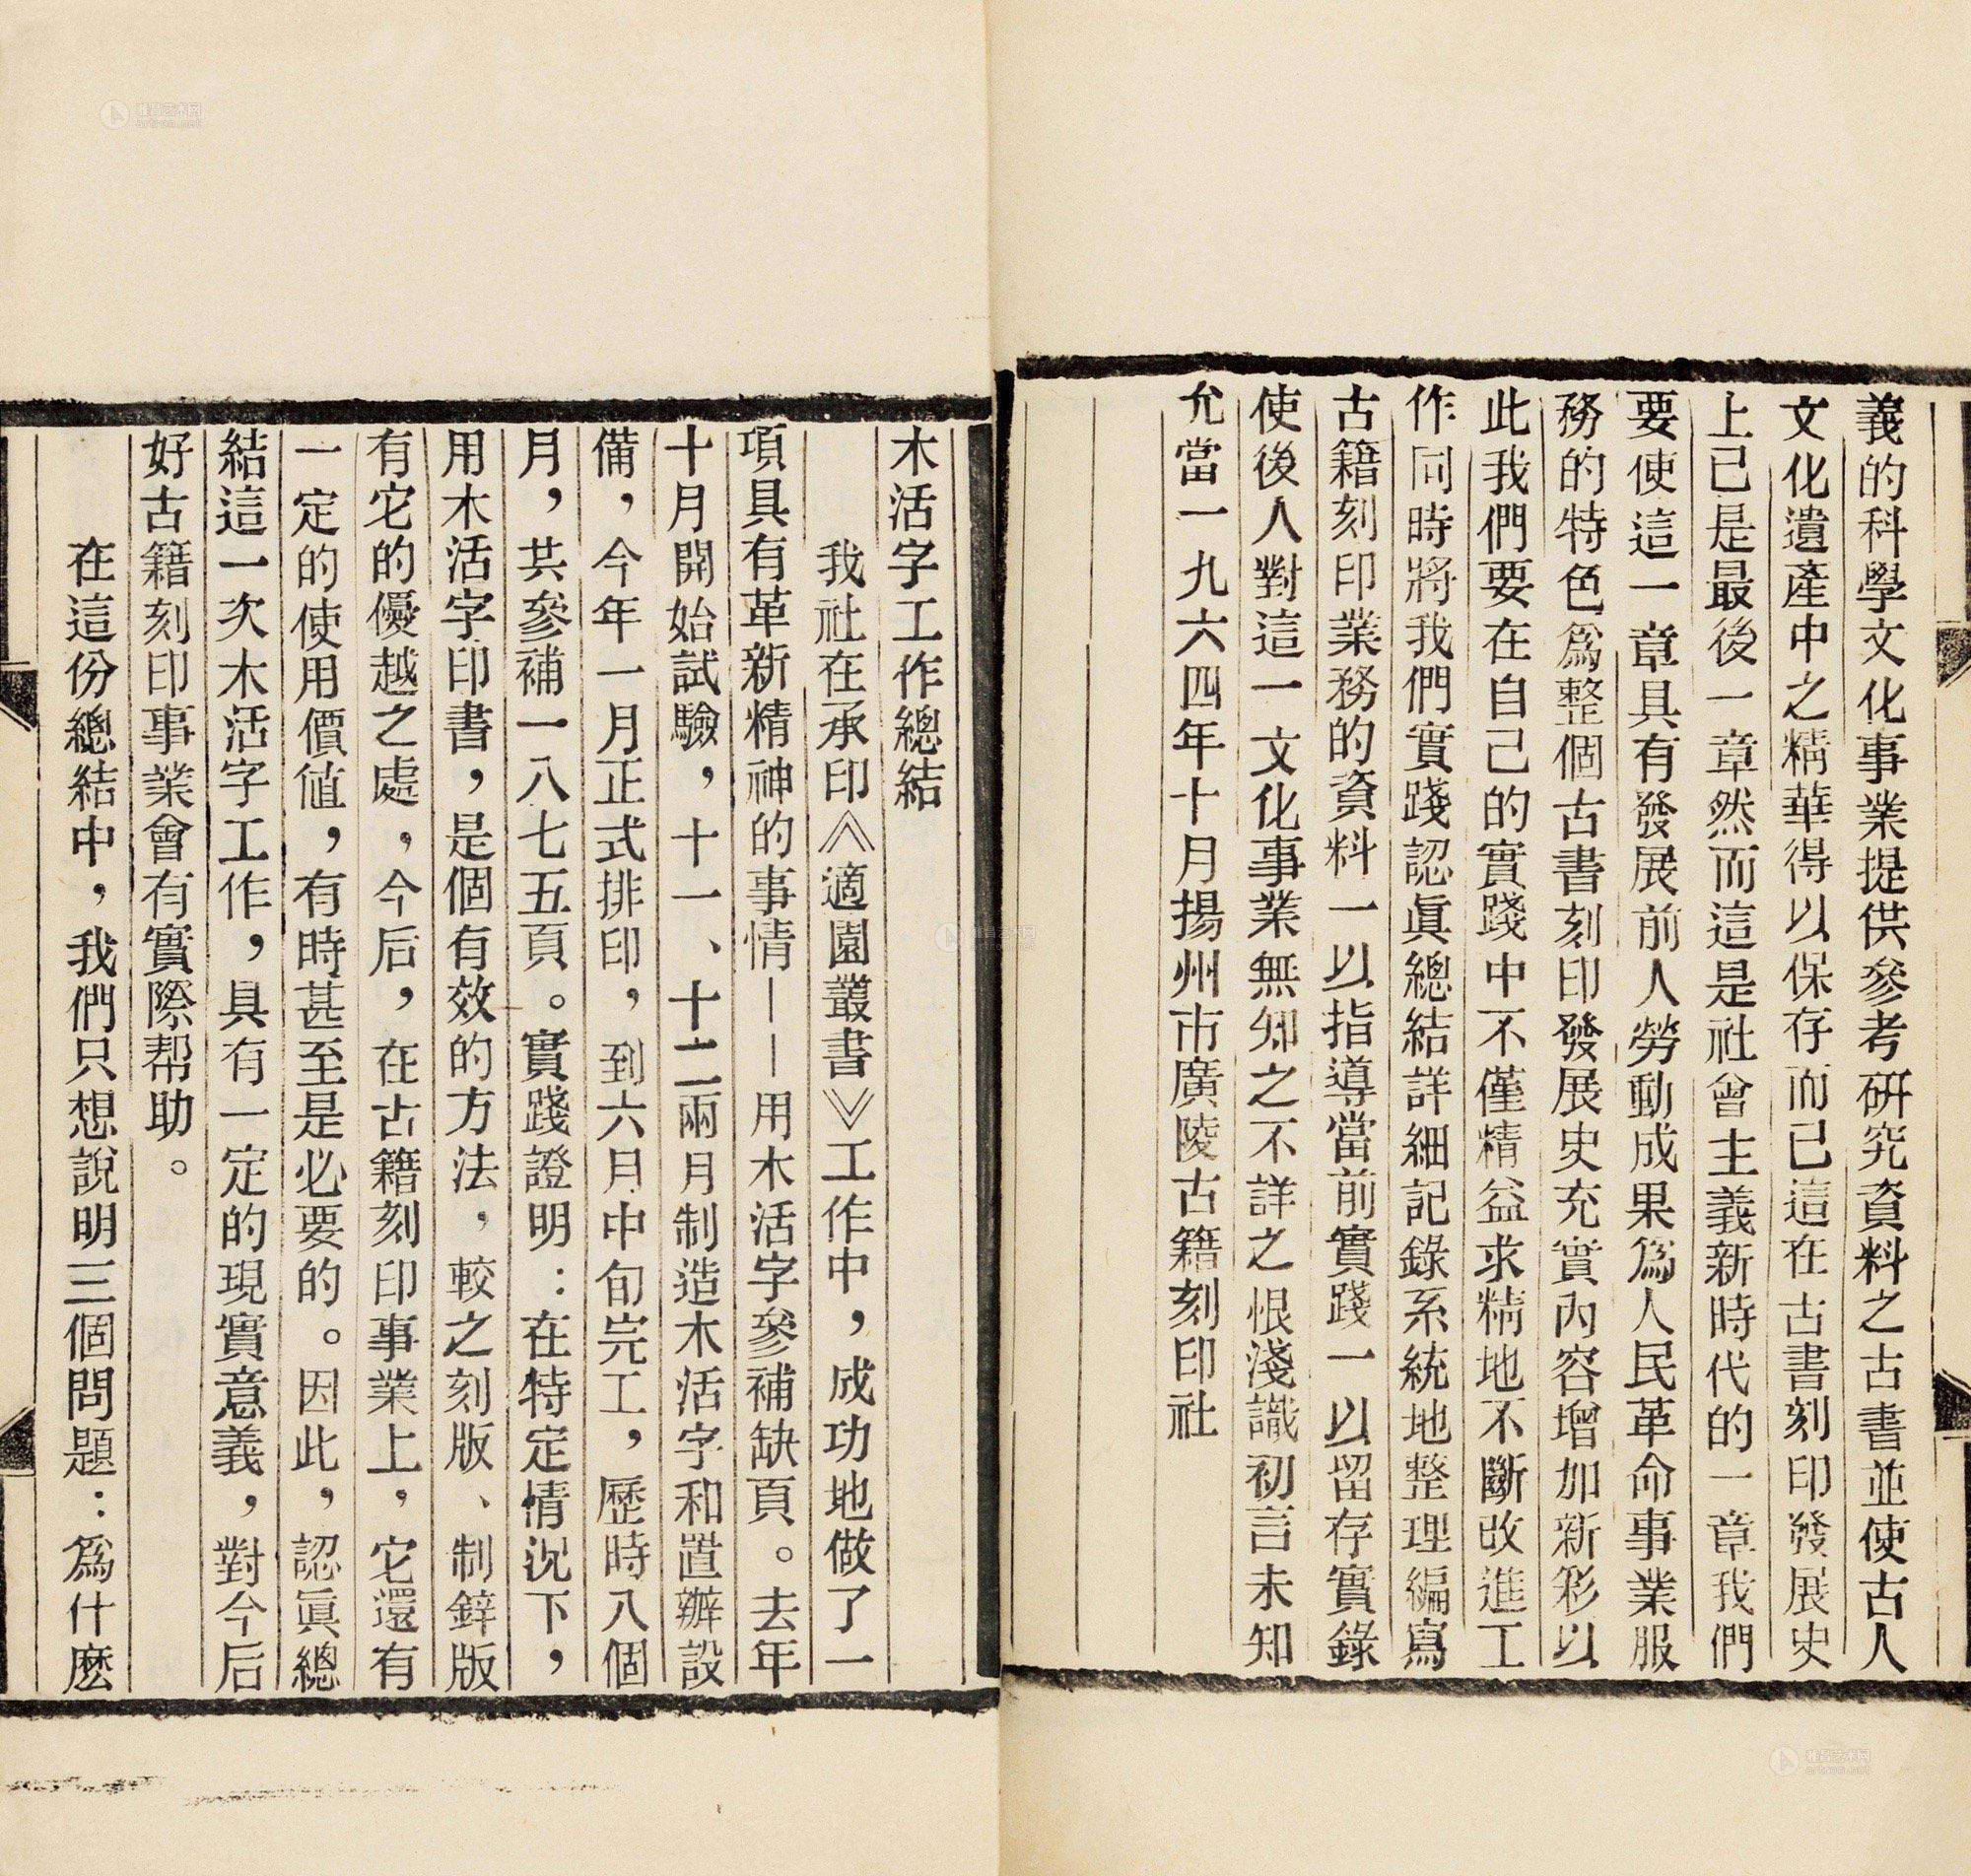 義的科學文化事業提供參考研究資料之古書並使古人
文化遺產中之精華得以保存而已這在古書刻印發展史
上已是最後一章然而這是社會主義新時代的一章我們
要使這一章具有發展前人勞動成果為人民革命事業服
務的特色為整個古書刻印發展史充實內容增加新彩以
此我們要在自己的實踐中不僅精益求精地不斷改進工
作同時將我們實踐認眞總結詳細記錄系統地整理編寫
古籍刻印業務的資料一以指導當前實踐一以留存實錄
使後人對這一文化事業無知之不詳之恨淺識初言未知
允當一九六四年十月揚州市廣陵古籍刻印社
木活字工作總結
我社在承印《適園叢書》工作中，成功地做了一
項具有革新精神的事情——用木活字參補缺頁。去年
十月開始試驗，十一、十二兩月制造木活字和置辦設
備，今年一月正式排印，到六月中旬完工，歷時八個
月，共參補一八七五頁。實踐證明：在特定情況下，
用木活字印書，是個有效的方法，較之刻版、制鋅版
有它的優越之處，今后，在古籍刻印事業上，它還有
一定的使用價值，有時甚至是必要的。因此，認眞總
結這一次木活字工作，具有一定的現實意義，對今后
好古籍刻印事業會有實際帮助。
在這份總結中，我們只想說明三個問題：爲什麼